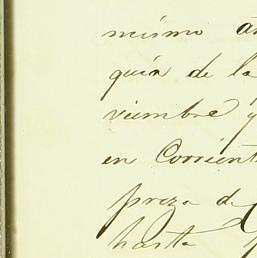 mismo
quia de la
viembre y
en Corrient
preza de
hasta